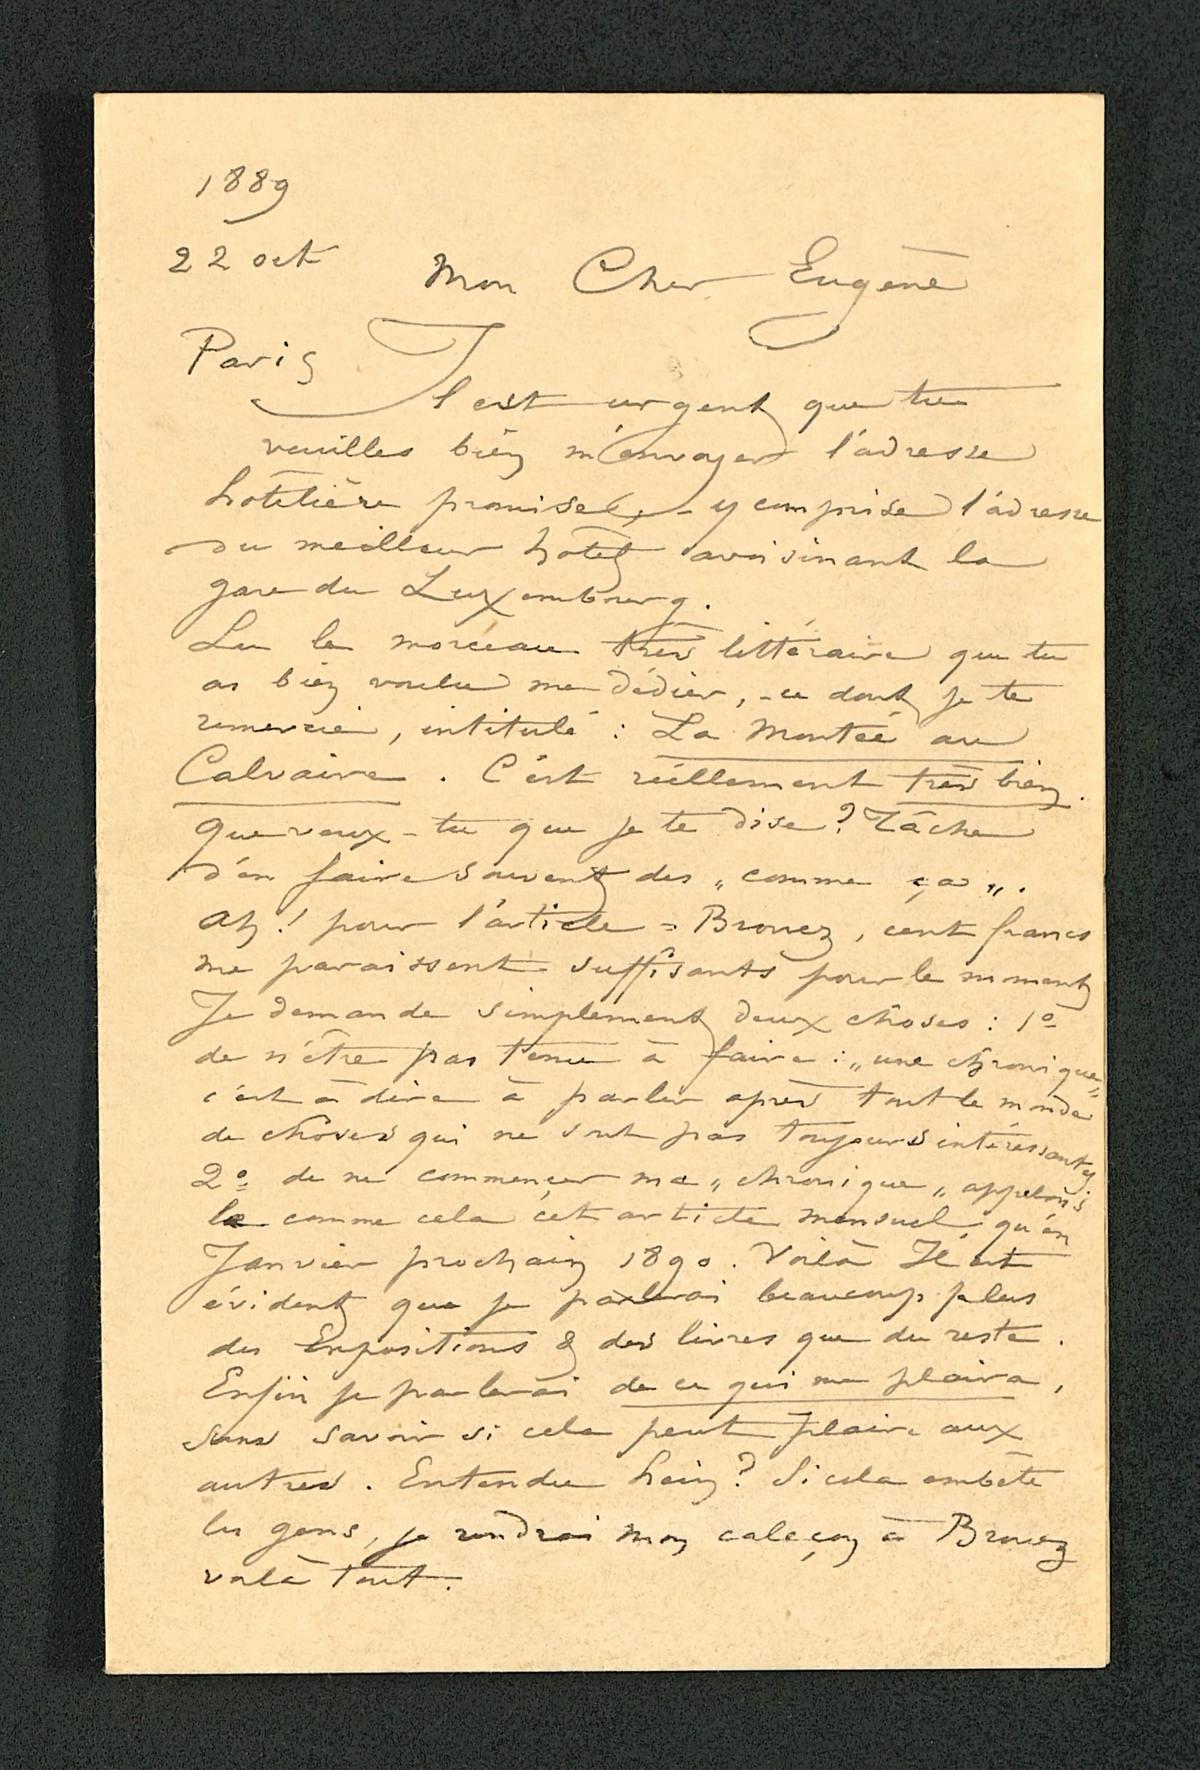 1889
22 oct Mon Cher Eugène
Paris
Il est urgent que tu
veuilles bien m'envoyer l'adresse
hôtelière promise, - y comprise l'adresse
du meilleur hôtel avoisinant la
gare du Luxembourg.
Lu le morceau très littéraire que tu
as bien voulu me dédier, - ce dont je te
remercie, intitulé : La Montée au
Calvaire. C'est réellement très bien.
Que veux-tu que je te dise? Tâche
d'en faire souvent des „ comme ça „.
Ah! pour l'article = Brouez, cent francs
me paraissent suffisants pour le moment
Je demande simplement deux choses : 1º
de n'être pas tenu à faire : „ une chronique „
c'est à dire à parler après tout le monde
de choses qui ne sont pas toujours intéressantes
2º de ne commencer ma „ chronique „ appelons
la comme cela cet article mensuel, qu'en
Janvier prochain 1890. Voilà Il est
évident que je parlerai beaucoup plus
des Expositions & des livres que du reste.
Enfin je parlerai de ce qui me plaira,
sans savoir si cela peut plaire aux
autres. Entendu hein? Si cela embête
les gens, je rendrai mon caleçon à Brouez
voilà tout.